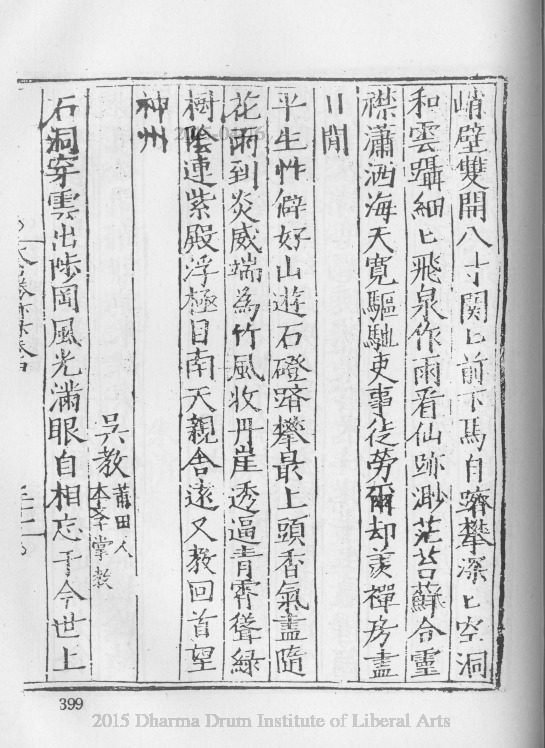 峭壁雙開八寸関匕前下馬自躋攀深匕空洞
和雲躡細匕飛泉作雨看仙跡渺茫苔蘚合靈
襟瀟洒海天寬驅馳吏事徒勞爾却羨禪房盡
日閒
平生性僻好山遊石磴躋攀最上頭香氣盡隨
花雨到炎威端為竹風收丹崖透逼青霄聳綠
樹陰連紫殿浮極目南天親舍遠又教回首望
神州
吳教 莆田人 本學掌教
石洞穿雲出陟岡風光滿眼自相忘于今世上
399
2015 Dharma Drum Institute of Liberal Arts